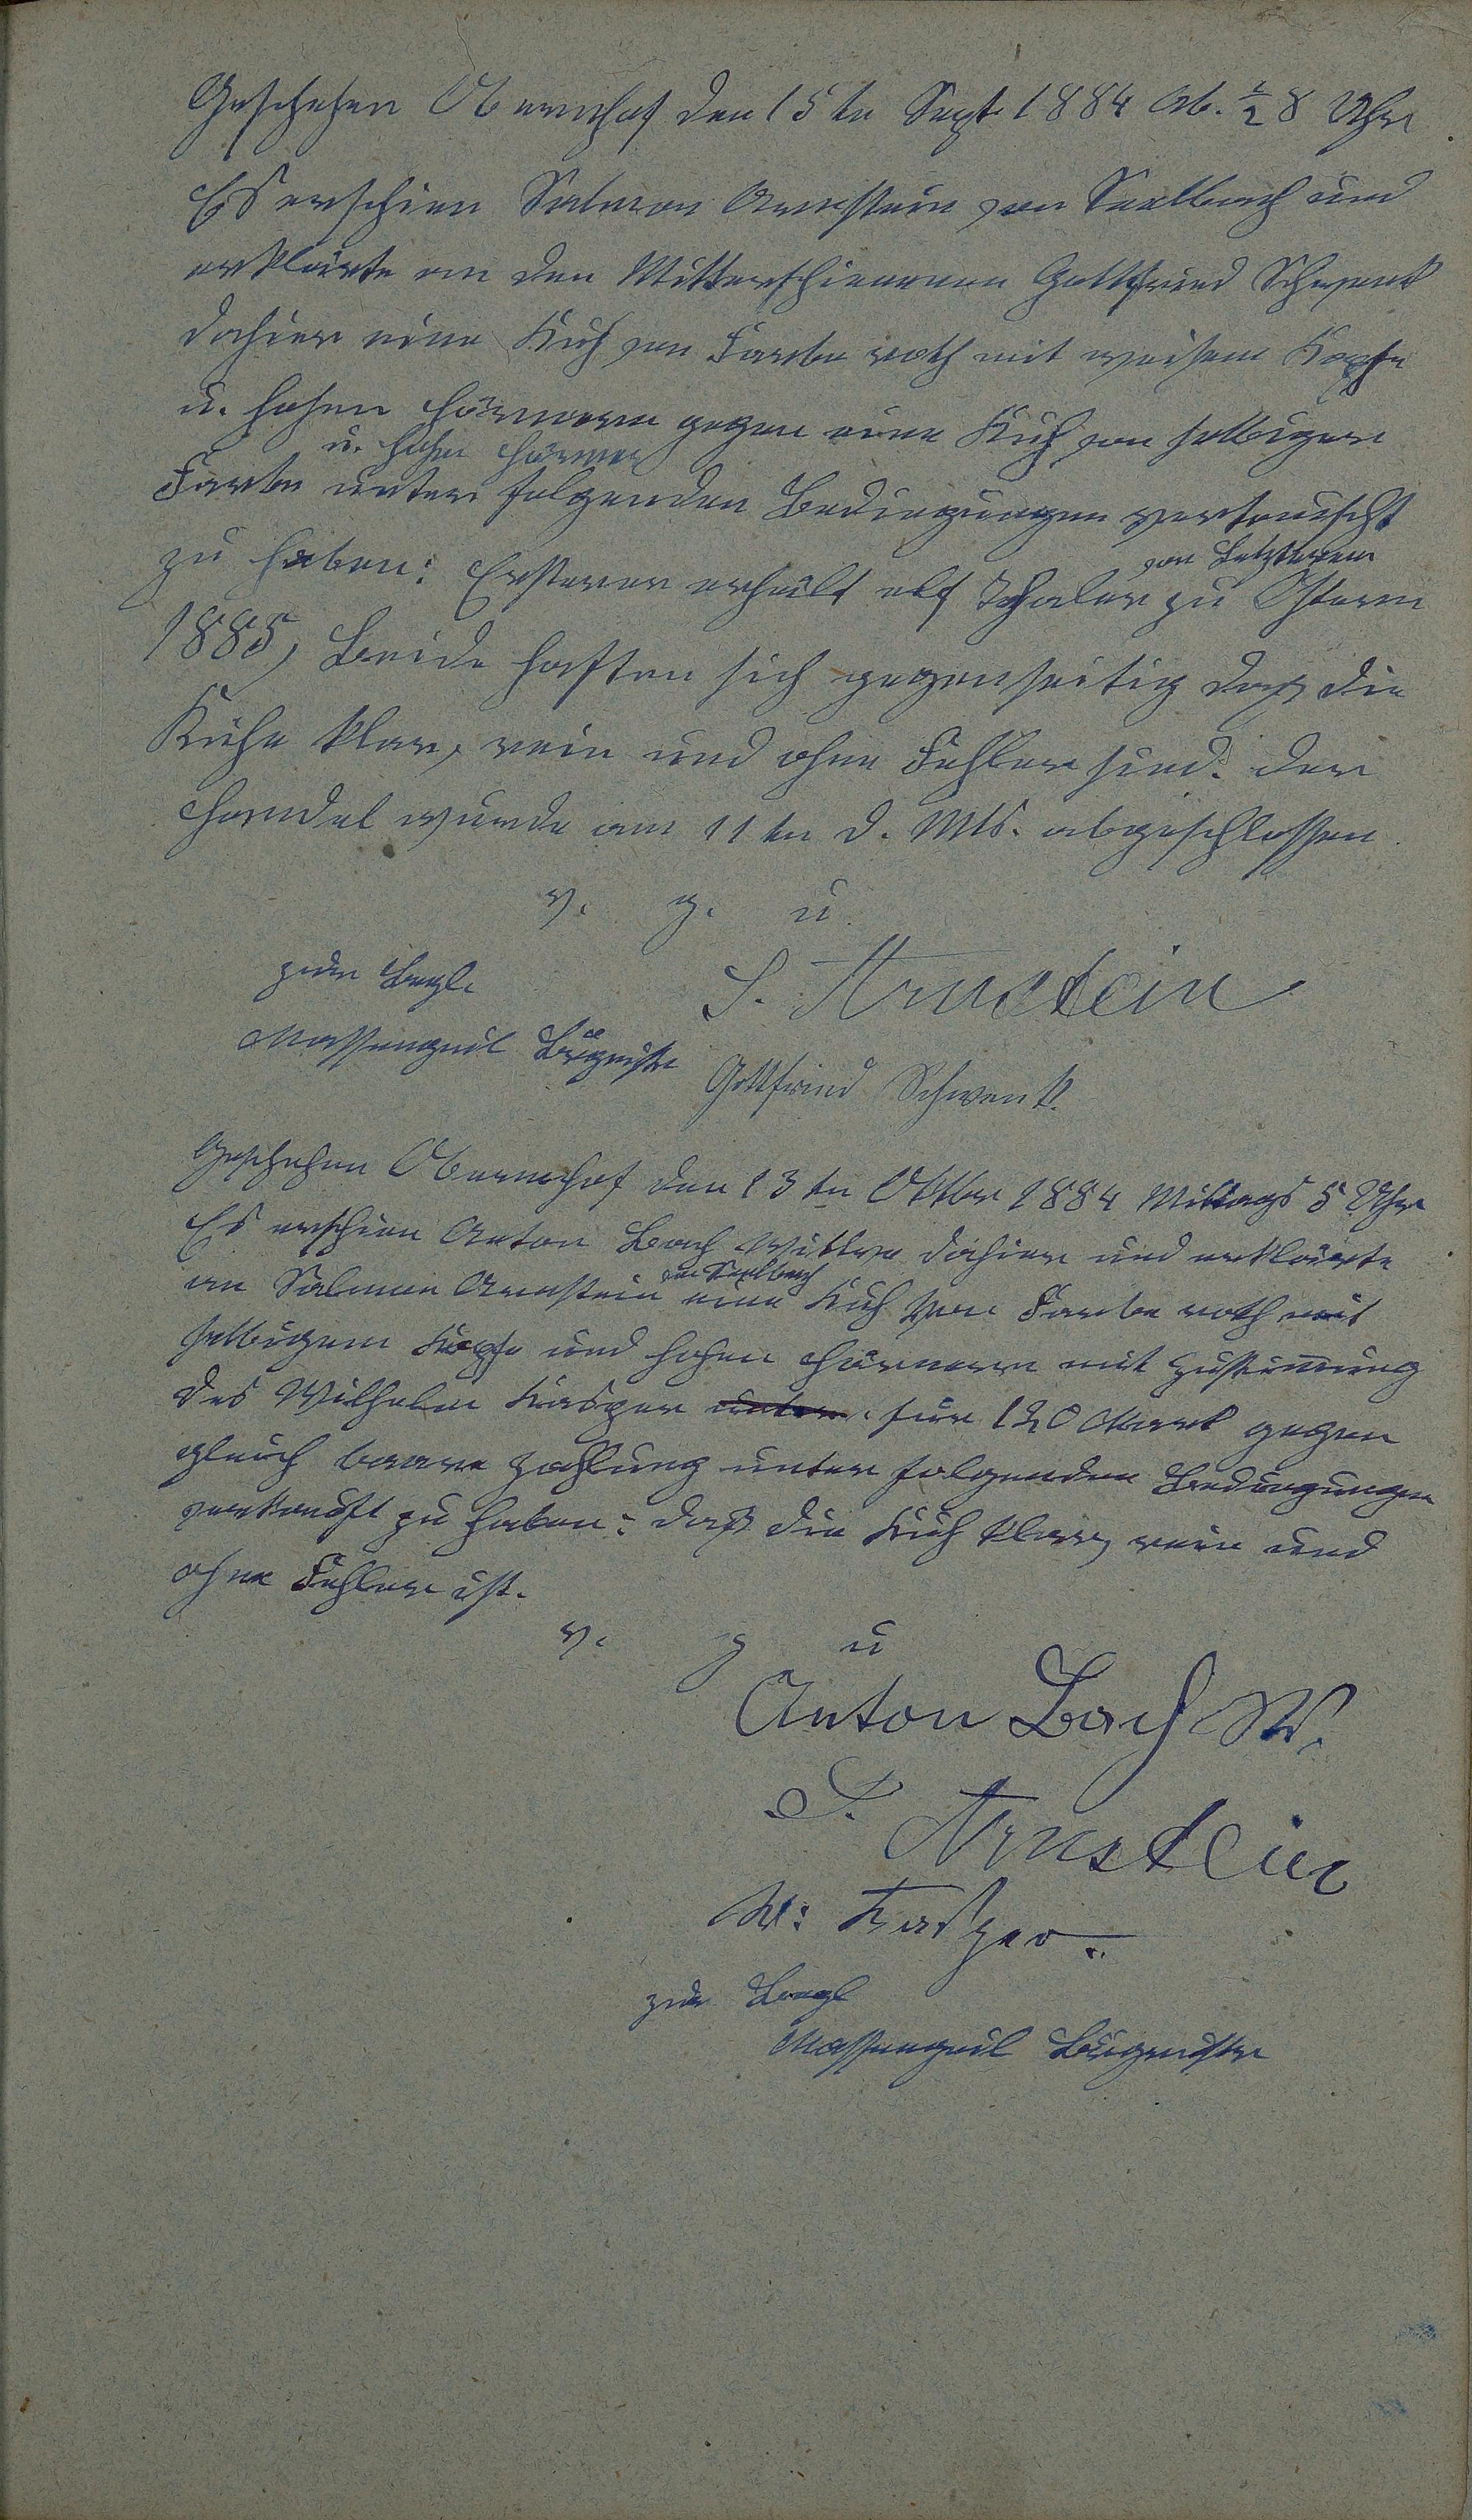 Geschehen Obernhof den 15ten Sept. 1884 Ab. ½ 8 Uhr
Es erschien Salmon Arnstein von Seelbach und
erklärte an den Mitterschienenen Gottfried Schwenk
dahier eine Kuh von Farbe roth mit weisem Kopfe
u. hohen Hörnern gegen eine Kuh von selbiger
u. hohe Hörner
Farbe unter folgenden Bedingungen vertauscht
von Letzterem
zu haben: Ersterer erhält elf Thaler zu Ostern
1885, Beide haften sich gegenseitig daß die
Kühe klar, rein und ohne Fehler sind. Der
Handel wurde am 11ten d. Mts. abgeschlossen.
v. g. u.
zur Begl.
S. Arnstein
Massengeil Bürgmstr
Gottfried Schwenk.
Geschehen Obernhof den 13ten Oktbr 1884 Mittags 5 Uhr
Es erschien Anton Bach Wittwe dahier und erklärte
von Seelbach
an Salmon Arnstein eine Kuh von Farbe roth mit
selbigem Kopfe und hohen Hörnern mit Zustimmung
des Wilhelm Kasper unter für 120 Mark gegen
gleich baare Zahlung unter folgenden Bedingungen
verkauft zu haben: daß die Kuh klar, rein und
ohne Fehler ist.
v. g u
Anton Bach W.
S. Arnstein
W: Kasper.
zur Begl
Massengeil Bürgmstr